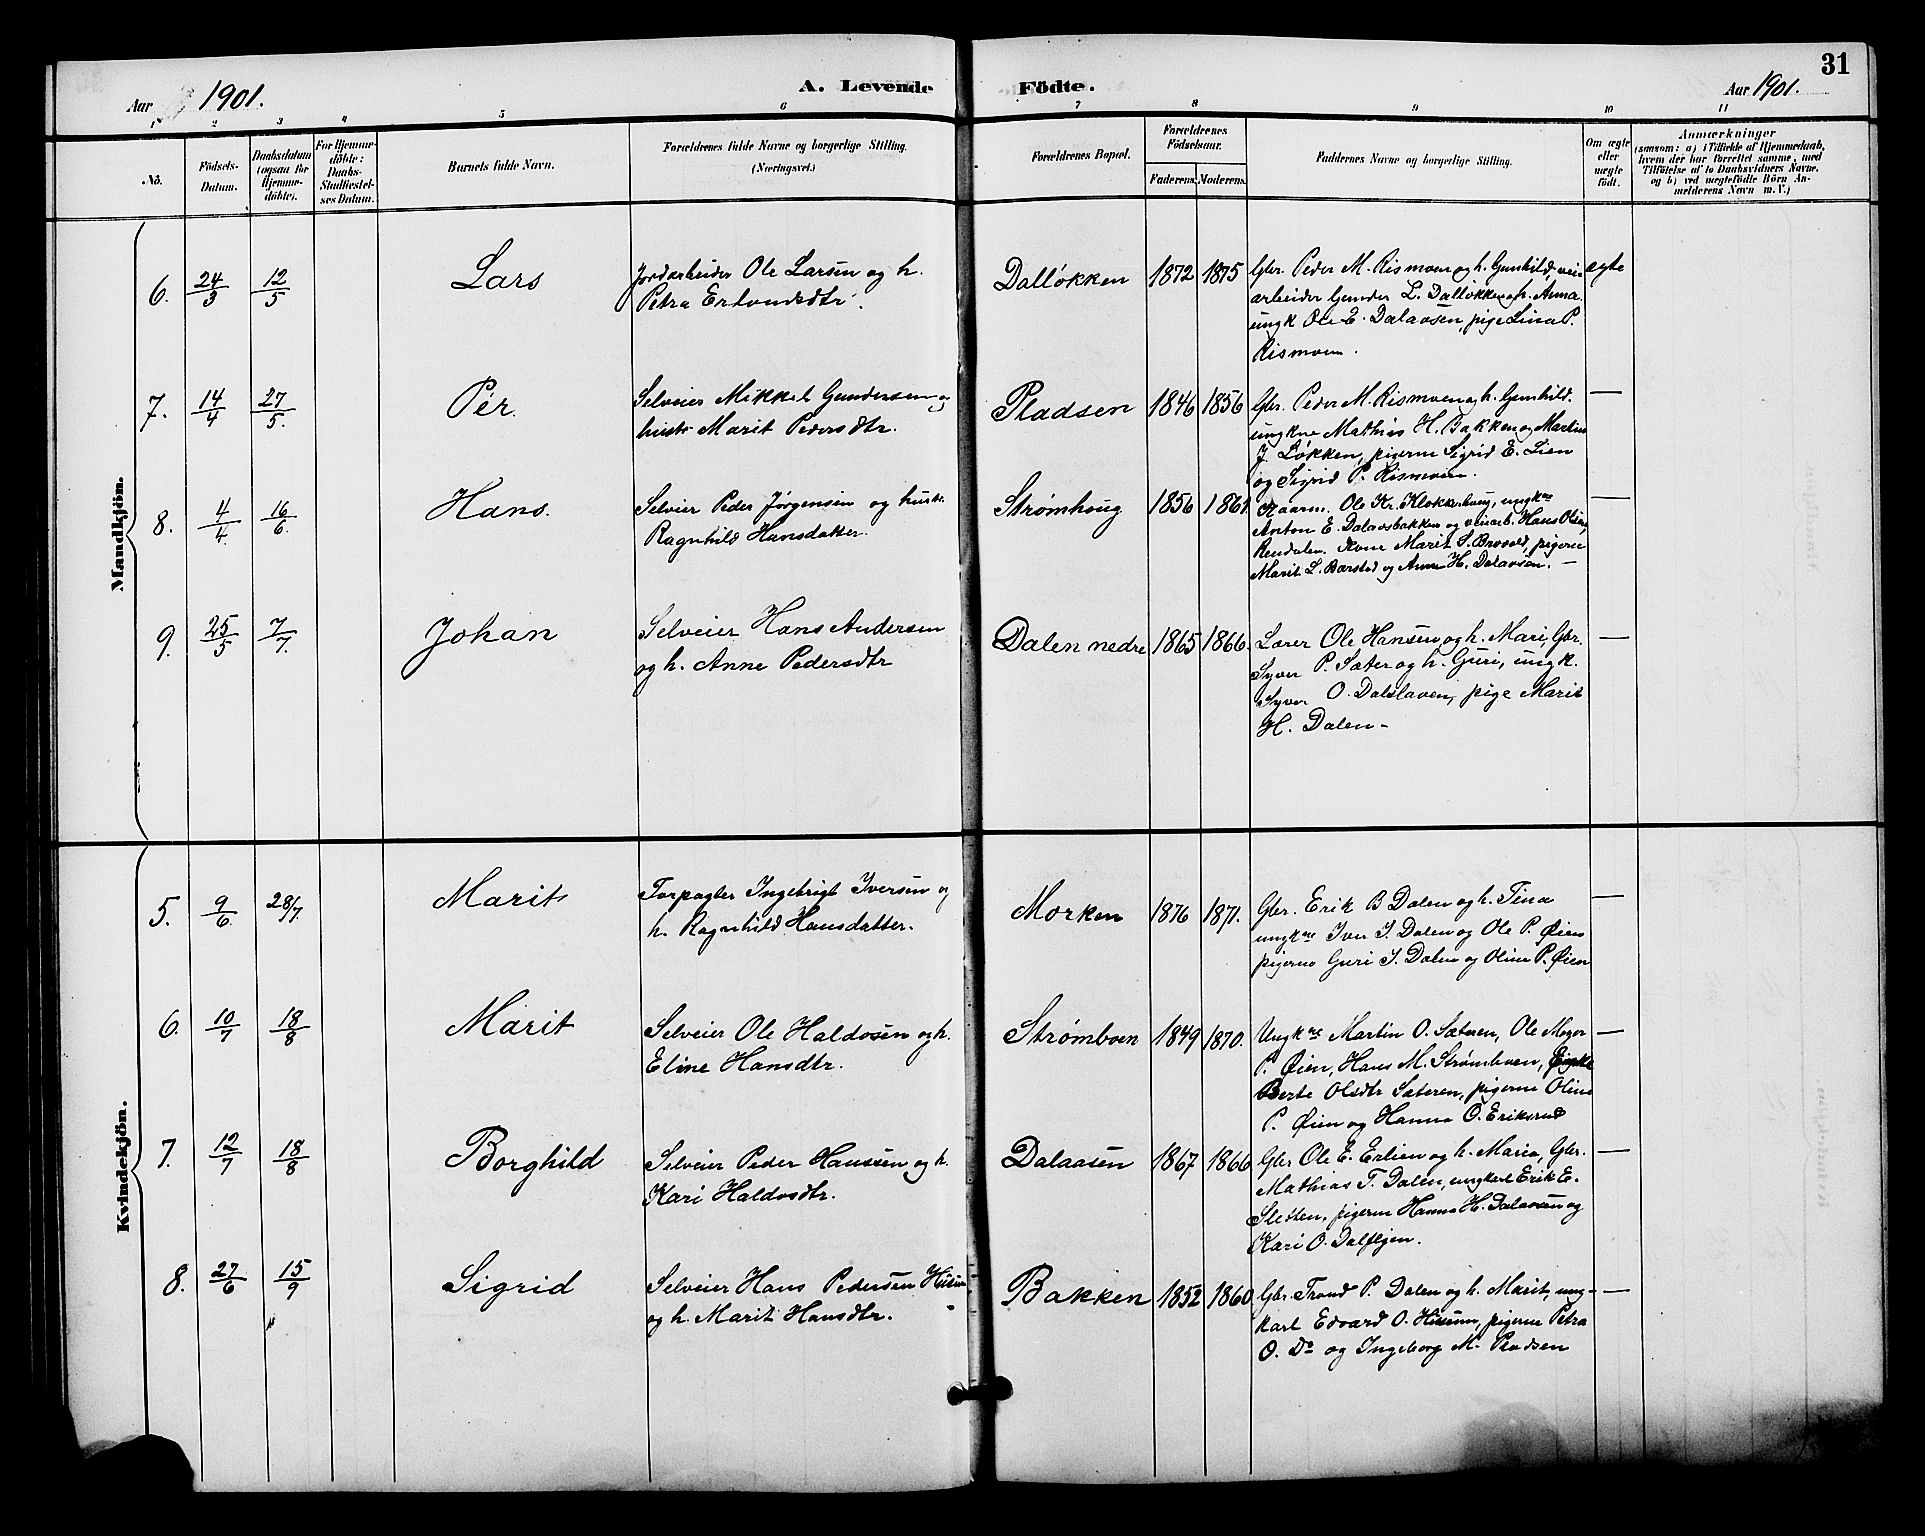 31
Aar 1901.
A. Levende Födte.
Aar 1901.
1 2 3 4 5 6 7 8 9 10 11
No.
Födsels-
Datum.
Daabsdatum
(ogsaa for
Hjemme-
döbte).
For Hjemme-
döbte:
Daabs-
Stadfæstel-
ses Datum.
Barnets fulde Navn.
Forældrenes fulde Navne og borgerlige Stilling.
(Næringsvei.)
Forældrenes Bopæl.
Forældrenes
Födselsaar.
Faderens. Moderens.
Faddernes Navne og borgerlige Stilling.
Om ægte
eller
uægte
födt.
Anmærkninger
(saasom: a) i Tilfælde af Hjemmedaab,
hvem der har forrettet samme, med
Tilföielse af to Daabsvidners Navne,
og b) ved uægtefödte Börn An-
melderens Navn m. V.)
Mandkjön.
6. 24/3 12/5 Lars
Jordarbeider Ole Larsen og h.
Petra Erlandsdtr.
Dalløkken 1872 1875
Gbr. Peder M. Rismoen og h. Gunhild, vei-
arbeider Gunder L. Dalløkken og h. Anna.
ungk Ole E. Dalaasen, pige Lina P.
Rismoen.
ægte
7. 14/4 27/5. Per.
Selveier Mikkel Gundersen og
hustr Marit Pedersdtr.
Pladsen 1846 1856
Gbr. Peder M. Rismoen og h. Gunhild.
ungkne Mathias H. Bakken og Martin
J. Løkken, pigerne Sigrid E. Lien
og Sigrid P. Rismoen.
—
8. 4/4. 16/6 Hans.
Selvier Peder Jørgensen og hustr.
Ragnhild Hansdatter.
Strømhoug 1856 1861
Gaarm. Ole Kr. Klokkerhoug, ungkne
Anton E. Dalaasbakken og veiarb. Hans Olsen,
Rendalen. Kone Marit S. Brovold, pigerne
Marit L. Barstad og Anne H. Dalaasen. —
—
9. 25/5 7/7. Johan
Selveier Hans Andersen
og h. Anne Pedersdtr
Dalen nedre 1865 1866.
Lærer Ole Hansen og h. Mari, Gbr.
Syver P. Sæter og h. Guri, ungk.
Syver O. Dalslaven, pige Marit
H. Dalen -
—
Kvindekjön.
5. 9/6 28/7. Marit
Forpagter Ingebrigt Iversen og
h. Ragnhild Hansdatter.
Morken 1876 1871.
Gbr. Erik B Dalen og h. Tina
ungkne Iver I. Dalen og Ole P. Øien
pigerne Guri I. Dalen og Oline P. Øien
—
6. 10/7 18/8 Marit
Selveier Ole Haldosen og h.
Eline Hansdtr.
Strømboen 1849 1870.
Ungkne Martin O. Sæteren, Ole Meyer
P. Øien, Hans M. Strømboen,
Berte Olsdtr Sæteren, pigerne Oline
P. Øien og Hanna O. Eriksrud
—
7. 12/7 18/8 Borghild
Selveier Peder Hanssen og h.
Kari Haldosdtr.
Dalaasen 1867 1866
Gbr Ole E. Erlien og h. Maria, Gbr.
Mathias T. Dalen, ungkarl Erik E.
Sletten, pigerne Hanna H. Dalaasen og
Kari O. Dalflyen.
—
8. 27/6 15/9 Sigrid
Selveier Hans Pedersen Husum
og h. Marit Hansdtr.
Bakken 1852 1860
Gbr. Trond P. Dalen og h. Marit, ung-
karl Edvard O. Husum, pigerne Petra
O. Do og Ingeborg M. Pladsen
—